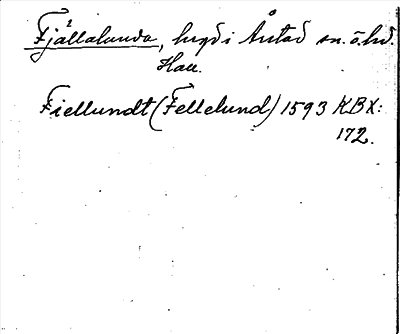 Fjällalunda, hygd i Årstad sn. ö. hd.
Hall.
Fiellundt (Fellelund) 1593 KBX:
172.